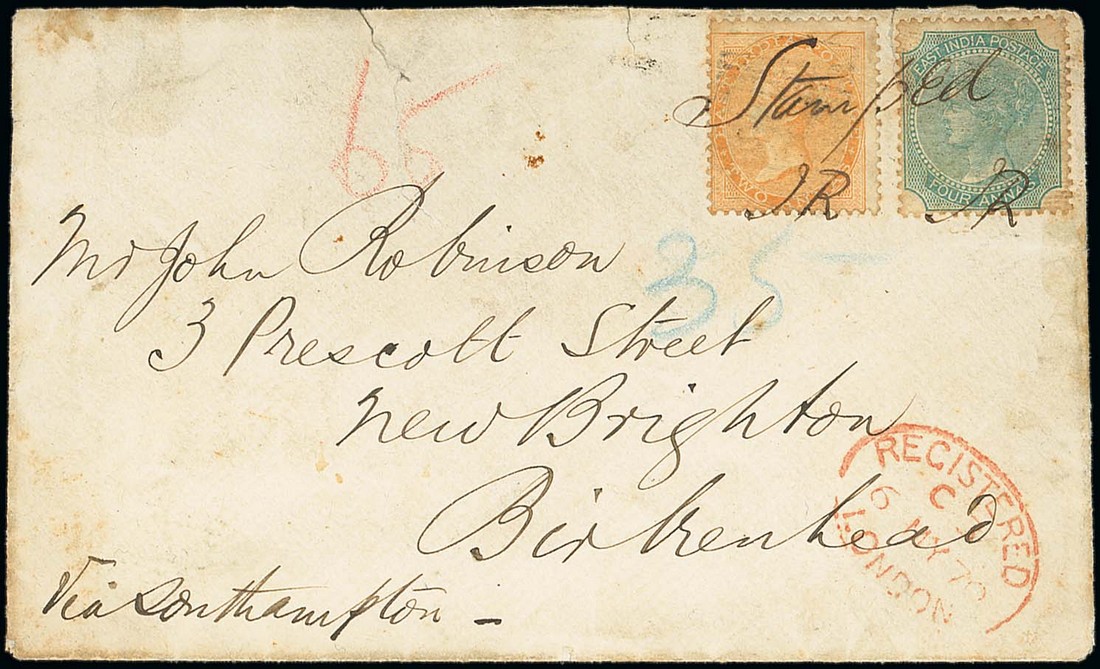 EAST INDIA POSTAGE
TWO
FOUR ANNAS
Stamped
JR JR
65
35
Mr John Robinson
3 Prescott Street
New Brighton
Birkenhead
Via Southampton –
REGISTERED
C
6 MY 70
LONDON